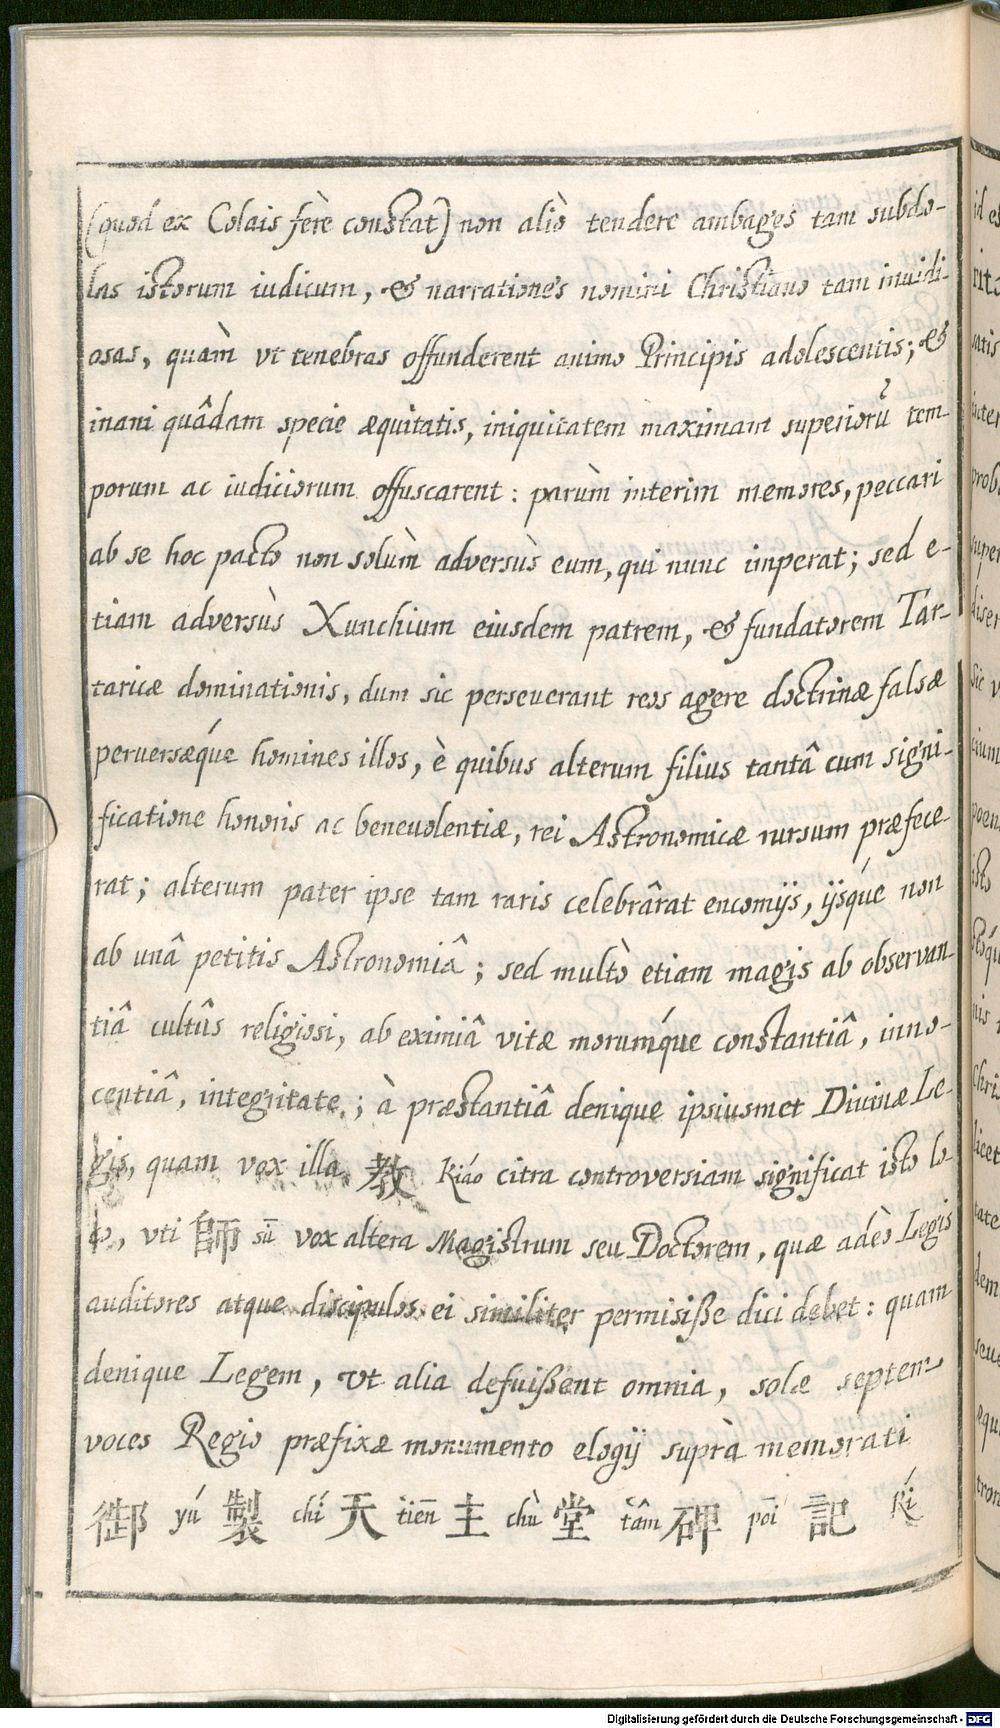 (quod ex Colais fère constat) non aliò tendere ambages tam subdo-
las istorum iudicum, & narrationes nomini Christiano tam inuidi-
osas, quàm vt tenebras offunderent animo Principis adolescentis; &
inani quâdam specie æquitatis, iniquitatem maximam superiorũ tem-
porum ac iudiciorum offuscarent: parùm interim memores, peccari
ab se hoc pacto non solùm adversùs eum, qui nunc imperat; sed e-
tiam adversùs Xunchium eiusdem patrem, & fundatorem Tar-
taricæ dominationis, dum sic perseuerant reos agere doctrinæ falsæ
peruersæq́ue homines illos, è quibus alterum filius tantâ cum signi-
ficatione honoris ac benevolentiæ, rei Astronomicæ rursum præfece-
rat; alterum pater ipse tam raris celebrârat encomijs, ijsq́ue non
ab unâ petitis Astronomiâ; sed multò etiam magis ab observan-
tiâ cultûs religiosi, ab eximiâ vitæ morumq́ue constantiâ, inno-
centiâ, integritate; à præstantiâ denique ipsiusmet Diuinæ Le-
gis, quam vox illa 教 Kiáo citra controversiam significat isto lo-
co, vti 師 sū vox altera Magistrum seu Doctorem, quæ adèo Legis
auditores atque discipulos ei similiter permisiße dici debet: quam
denique Legem, vt alia defuißent omnia, solæ septem
voces Regio præfixæ monumento elogij suprà memorati
御 yú 製 chí 天 tiēn 主 chù 堂 tâm 碑 poī 記 Kí
id es
rita
satis
inter
proba
super
diser
Sic v
cium
poen
isto
nis
Chris
licet
tate
dem
seue
æqu
tron
Digitalisierung gefördert durch die Deutsche Forschungsgemeinschaft - DFG